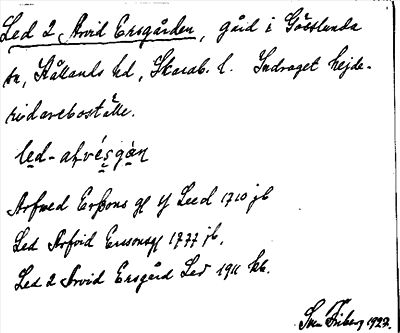 Led 2 Arvid Ersgården, gård i Göteslunda
sn, Kållands hd, Skarab. l. Indraget hejde-
ridareboställe.
led-arvésgàn
Arfwed Erssons gl y Leed 1710 jb
Led Arfvid Erssonsgl 1777 jb.
Led 2 Arvid Ersgård Led 1911 kb.
Sven Friberg 1927.